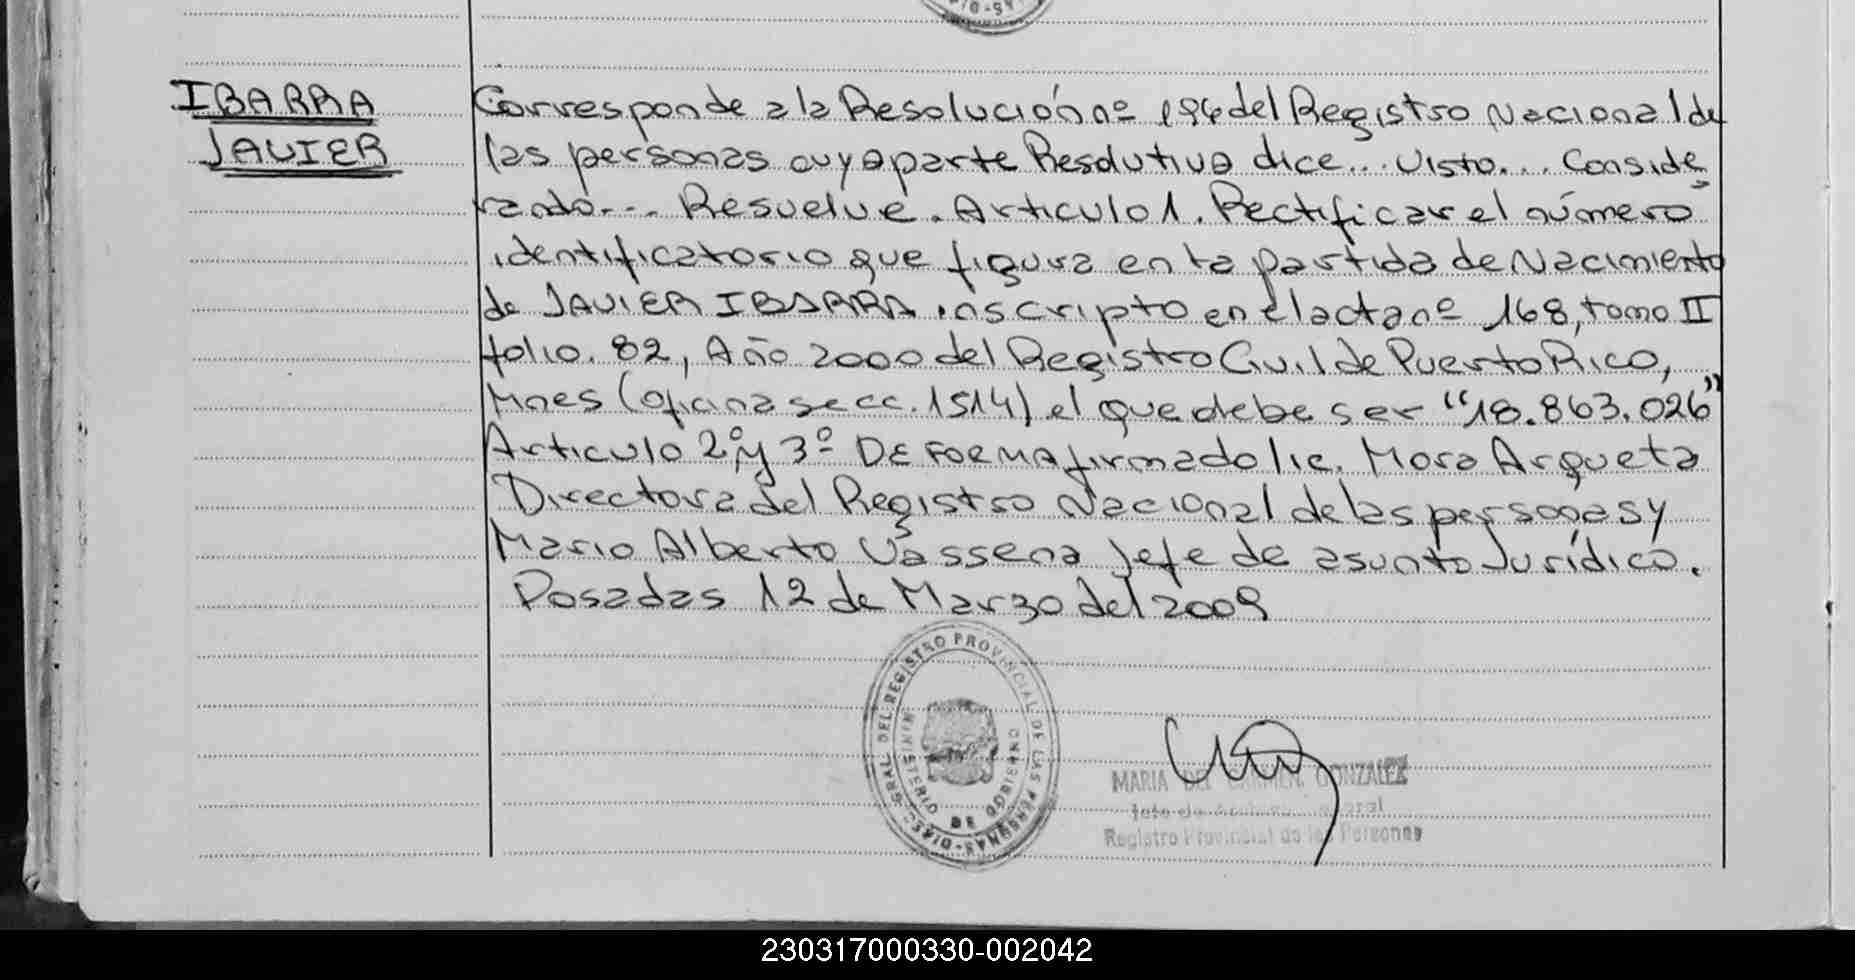 IBARRA
JAVIER
Corresponde a la Resolución nº 194 del Registro Nacional de
las personas cuya parte Resolutiva dice... Visto... Conside
rando... Resuelve. Articulo 1. Rectificar el número
identificatorio que figura en la partida de Nacimiento
de JAVIER IBARRA inscripto en el acta nº 168, tomo II
folio. 82, Año 2000 del Registro Civil de Puerto Rico,
Mnes (oficina secc. 1514) el que debe ser "18.863.026"
Articulo 2º y 3º DE FORMA firmado lic. Mora Arqueta
Directora del Registro Nacional de las personas y
Mario Alberto Vassena Jefe de asunto Jurídico.
Posadas 12 de Marzo del 2009
DIREC. GRAL. DEL REGISTRO PROVINCIAL DE LAS PERSONAS
MINISTERIO DE GOBIERNO
MARIA DEL CARMEN GONZALEZ
Registro Provincial de las Personas
230317000330-002042